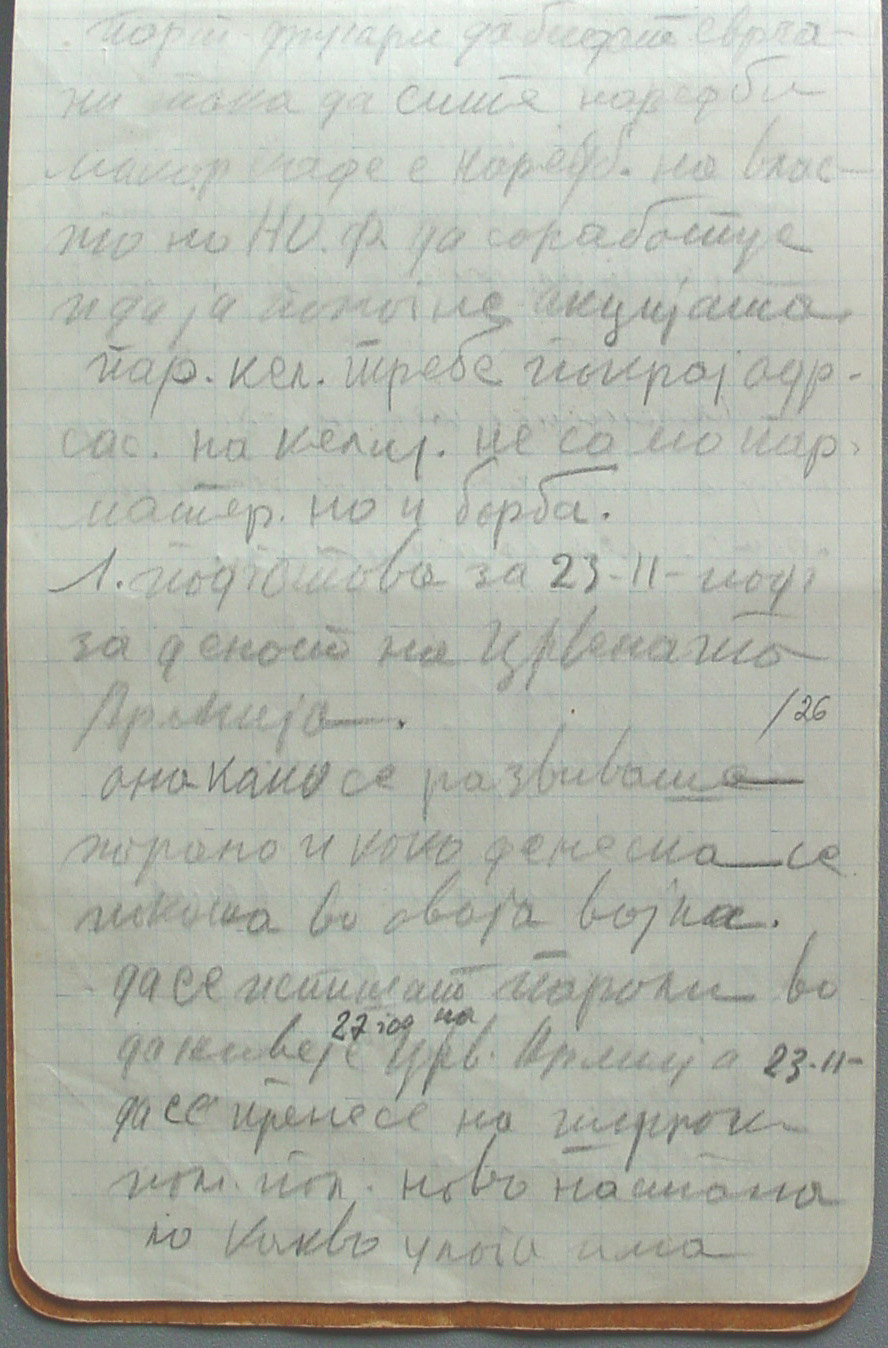 парт другари да бидат сврза-
ни така да сите наредби
макар каде е наредб. на влас-
та на НО. Ф. да соработуе
и да ја помогне акцијата.
пар. кел. требе покрај одр-
сас. на келиј. не само пар.
матер. но и борба.
1. подготова за 23-II- под
за денот на Црвената
Армија.
/26
она како се развиваше
порано и како денеска се
покажа во оваја војна.
да се испишат пароли во
да живеје 27 год на Црв. Армија 23-II-
да се пренесе на широк
пол. ново настана
ло каква улога има